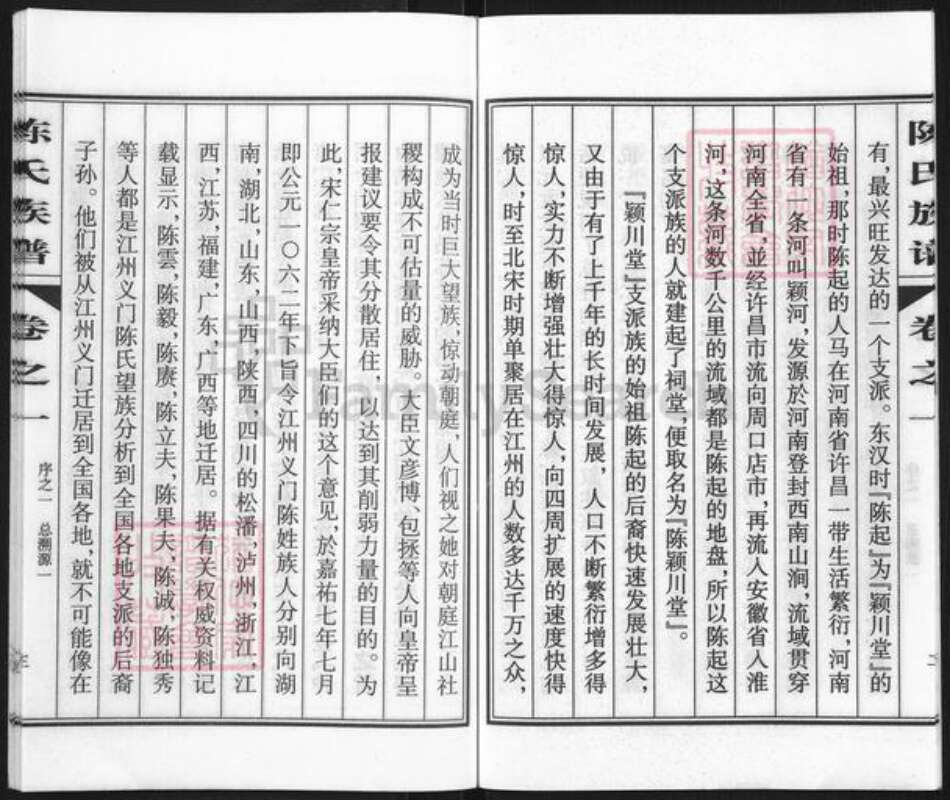 陈氏族谱 卷之一
有,最兴旺发达的一个支派。东汉时『陈起』为『颖川堂』的
始祖,那时陈起的人马在河南省许昌一带生活繁衍,河南
省有一条河叫颖河,发源於河南登封西南山涧,流域贯穿
河南全省,並经许昌市流向周口店市,再流人安徽省人淮
河,这条河数千公里的流域都是陈起的地盘,所以陈起这
个支派族的人就建起了祠堂,便取名为『陈颖川堂』。
『颖川堂』支派族的始祖陈起的后裔快速发展壮大,
又由于有了上千年的长时间发展,人口不断繁衍增多得
惊人,实力不断增强壮大得惊人,向四周扩展的速度快得
惊人,时至北宋时期单聚居在江州的人数多达千万之众,
成为当时巨大望族,惊动朝庭,人们视之她对朝庭江山社
稷构成不可估量的威胁。大臣文彦博、包拯等人向皇帝呈
报建议要令其分散居住,以达到其削弱力量的目的。为
此,宋仁宗皇帝采纳大臣们的这个意见,於嘉祐七年七月
即公元一〇六二年下旨令江州义门陈姓族人分别向湖
南,湖北,山东,山西,陕西,四川的松潘,泸州,浙江,江
西,江苏,福建,广东,广西等地迁居。据有关权威资料记
载显示,陈雲,陈毅,陈赓,陈立夫,陈果夫,陈诚,陈独秀
等人都是江州义门陈氏望族分析到全国各地支派的后裔
子孙。他们被从江州义门迁居到全国各地,就不可能像在
陈氏族谱 卷之一 序之一 总溯源一
FamilySearch